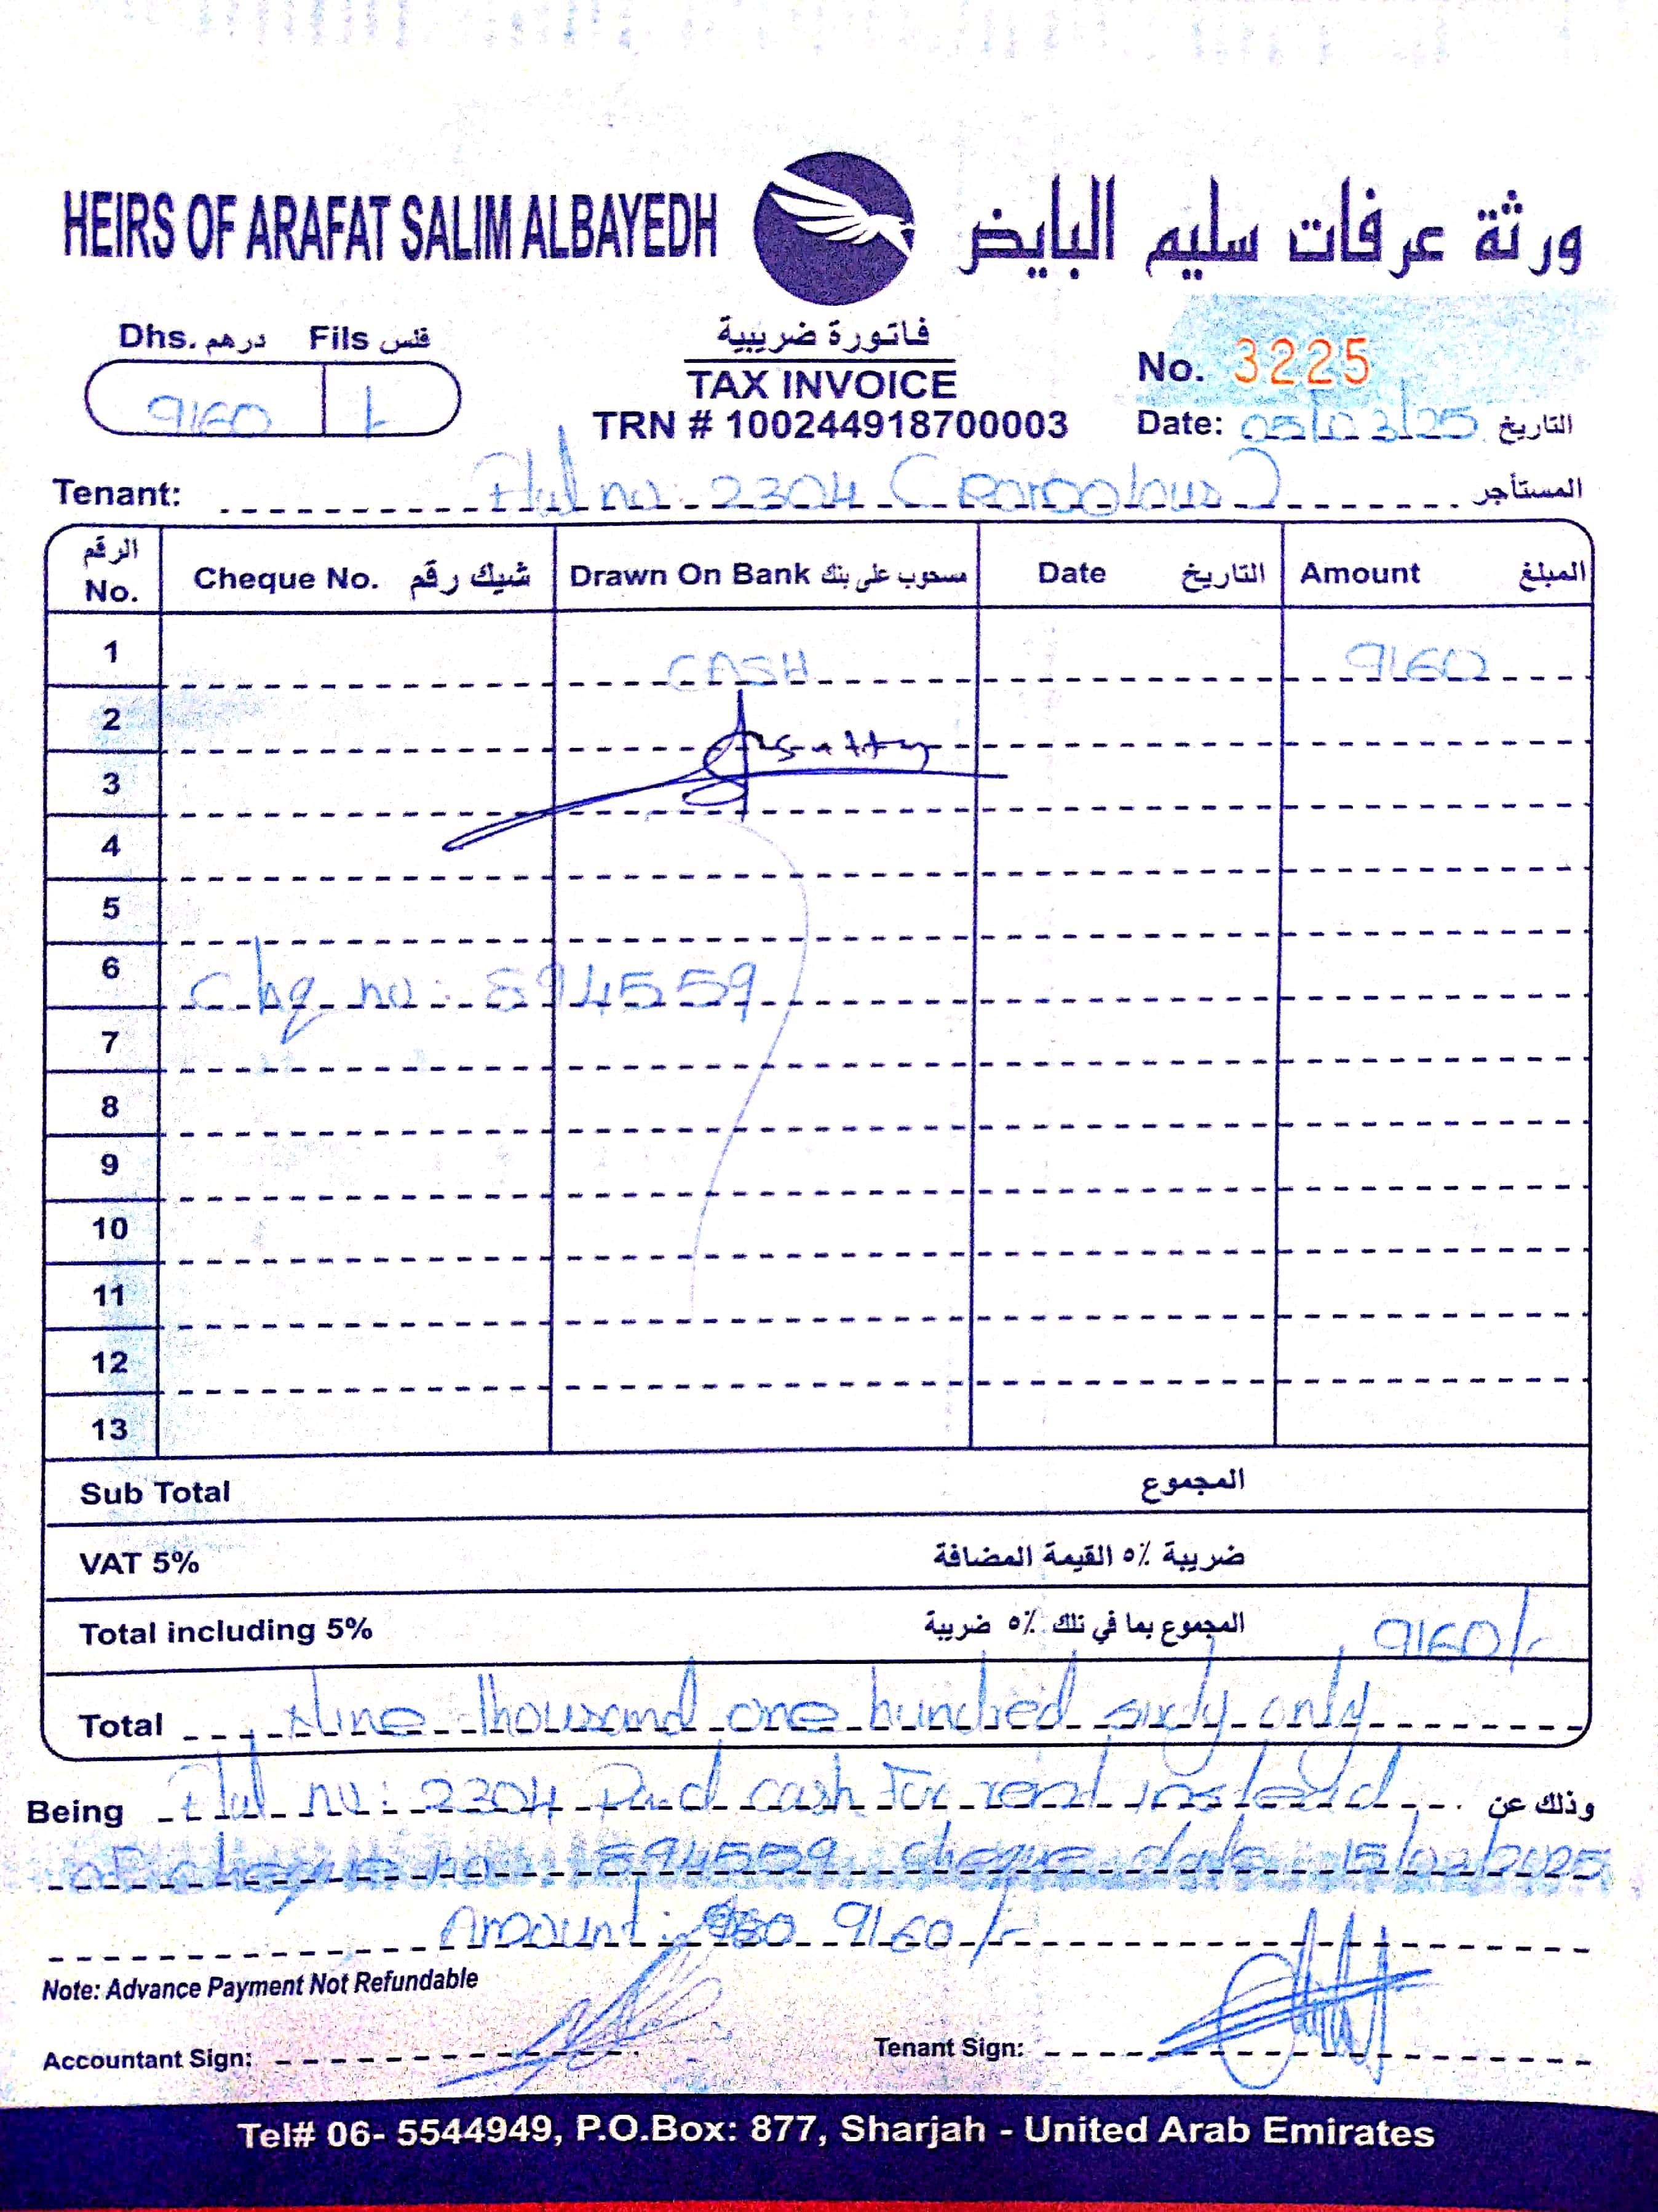 HEIRS OF ARAFAT SALIM ALBAYEDH ورثة عرفات سليم البايض
Dhs. درهم Fils فلس
9160 /-
فاتورة ضريبية
TAX INVOICE
TRN # 100244918700003
No. 3225
Date: 05/03/25 التاريخ
Tenant: Flat no: 2304 المستأجر
الرقم No. Cheque No. شيك رقم Drawn On Bank مسحوب على بنك Date التاريخ Amount المبلغ
1 CASH 9160
2
3
4
5
6 Chq no: 594559
7
8
9
10
11
12
13
Sub Total المجموع
VAT 5% ضريبة ٥٪ القيمة المضافة
Total including 5% المجموع بما في ذلك ٥٪ ضريبة 9160/-
Total Nine thousand one hundred sixty only
Being Flat no: 2304 Paid cash for rent instead وذلك عن
of cheque no 594559 cheque date 15/02/2025
Amount: 9160/-
Note: Advance Payment Not Refundable
Accountant Sign: Tenant Sign:
Tel# 06- 5544949, P.O.Box: 877, Sharjah - United Arab Emirates